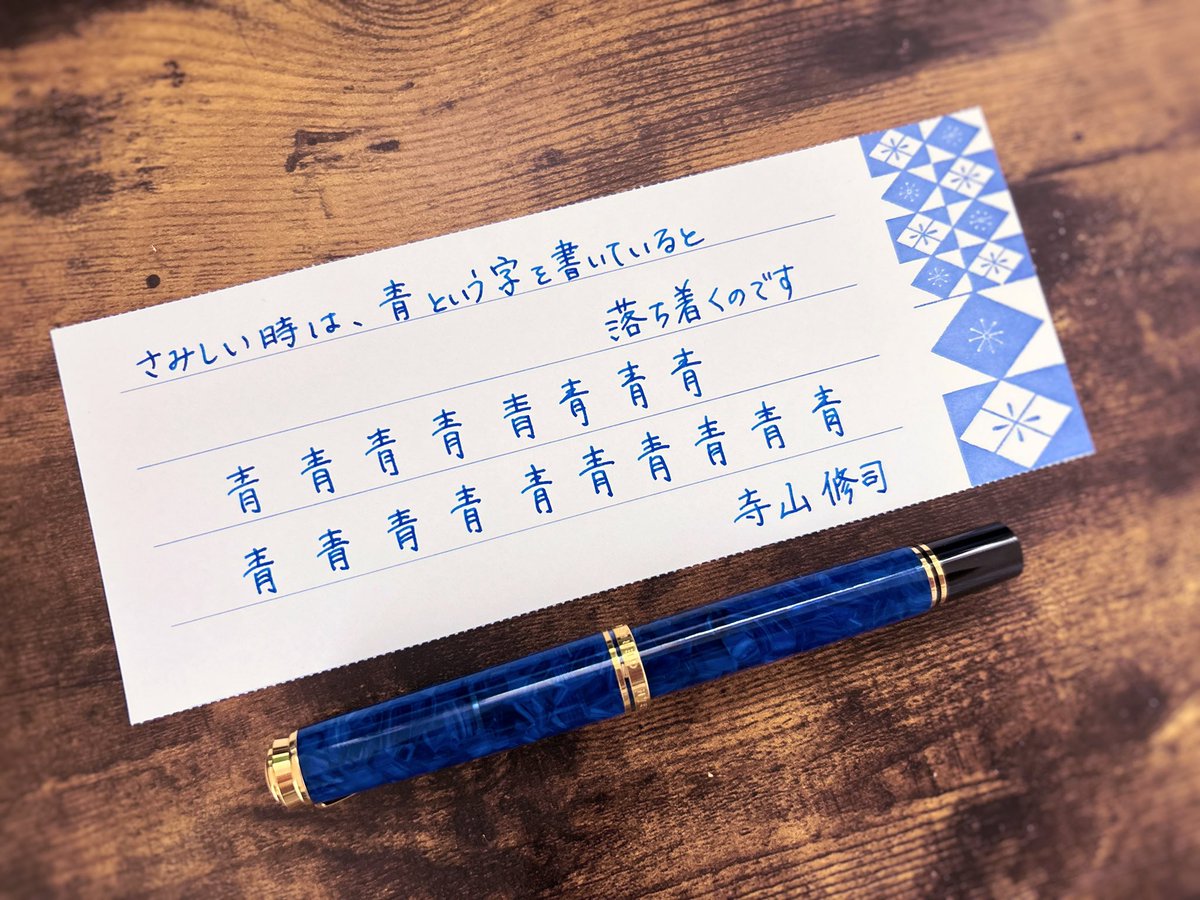 さみしい時は、青という字を書いていると
落ち着くのです
青 青 青 青 青 青 青 青
青 青 青 青 青 青 青 青 青 青
寺山修司